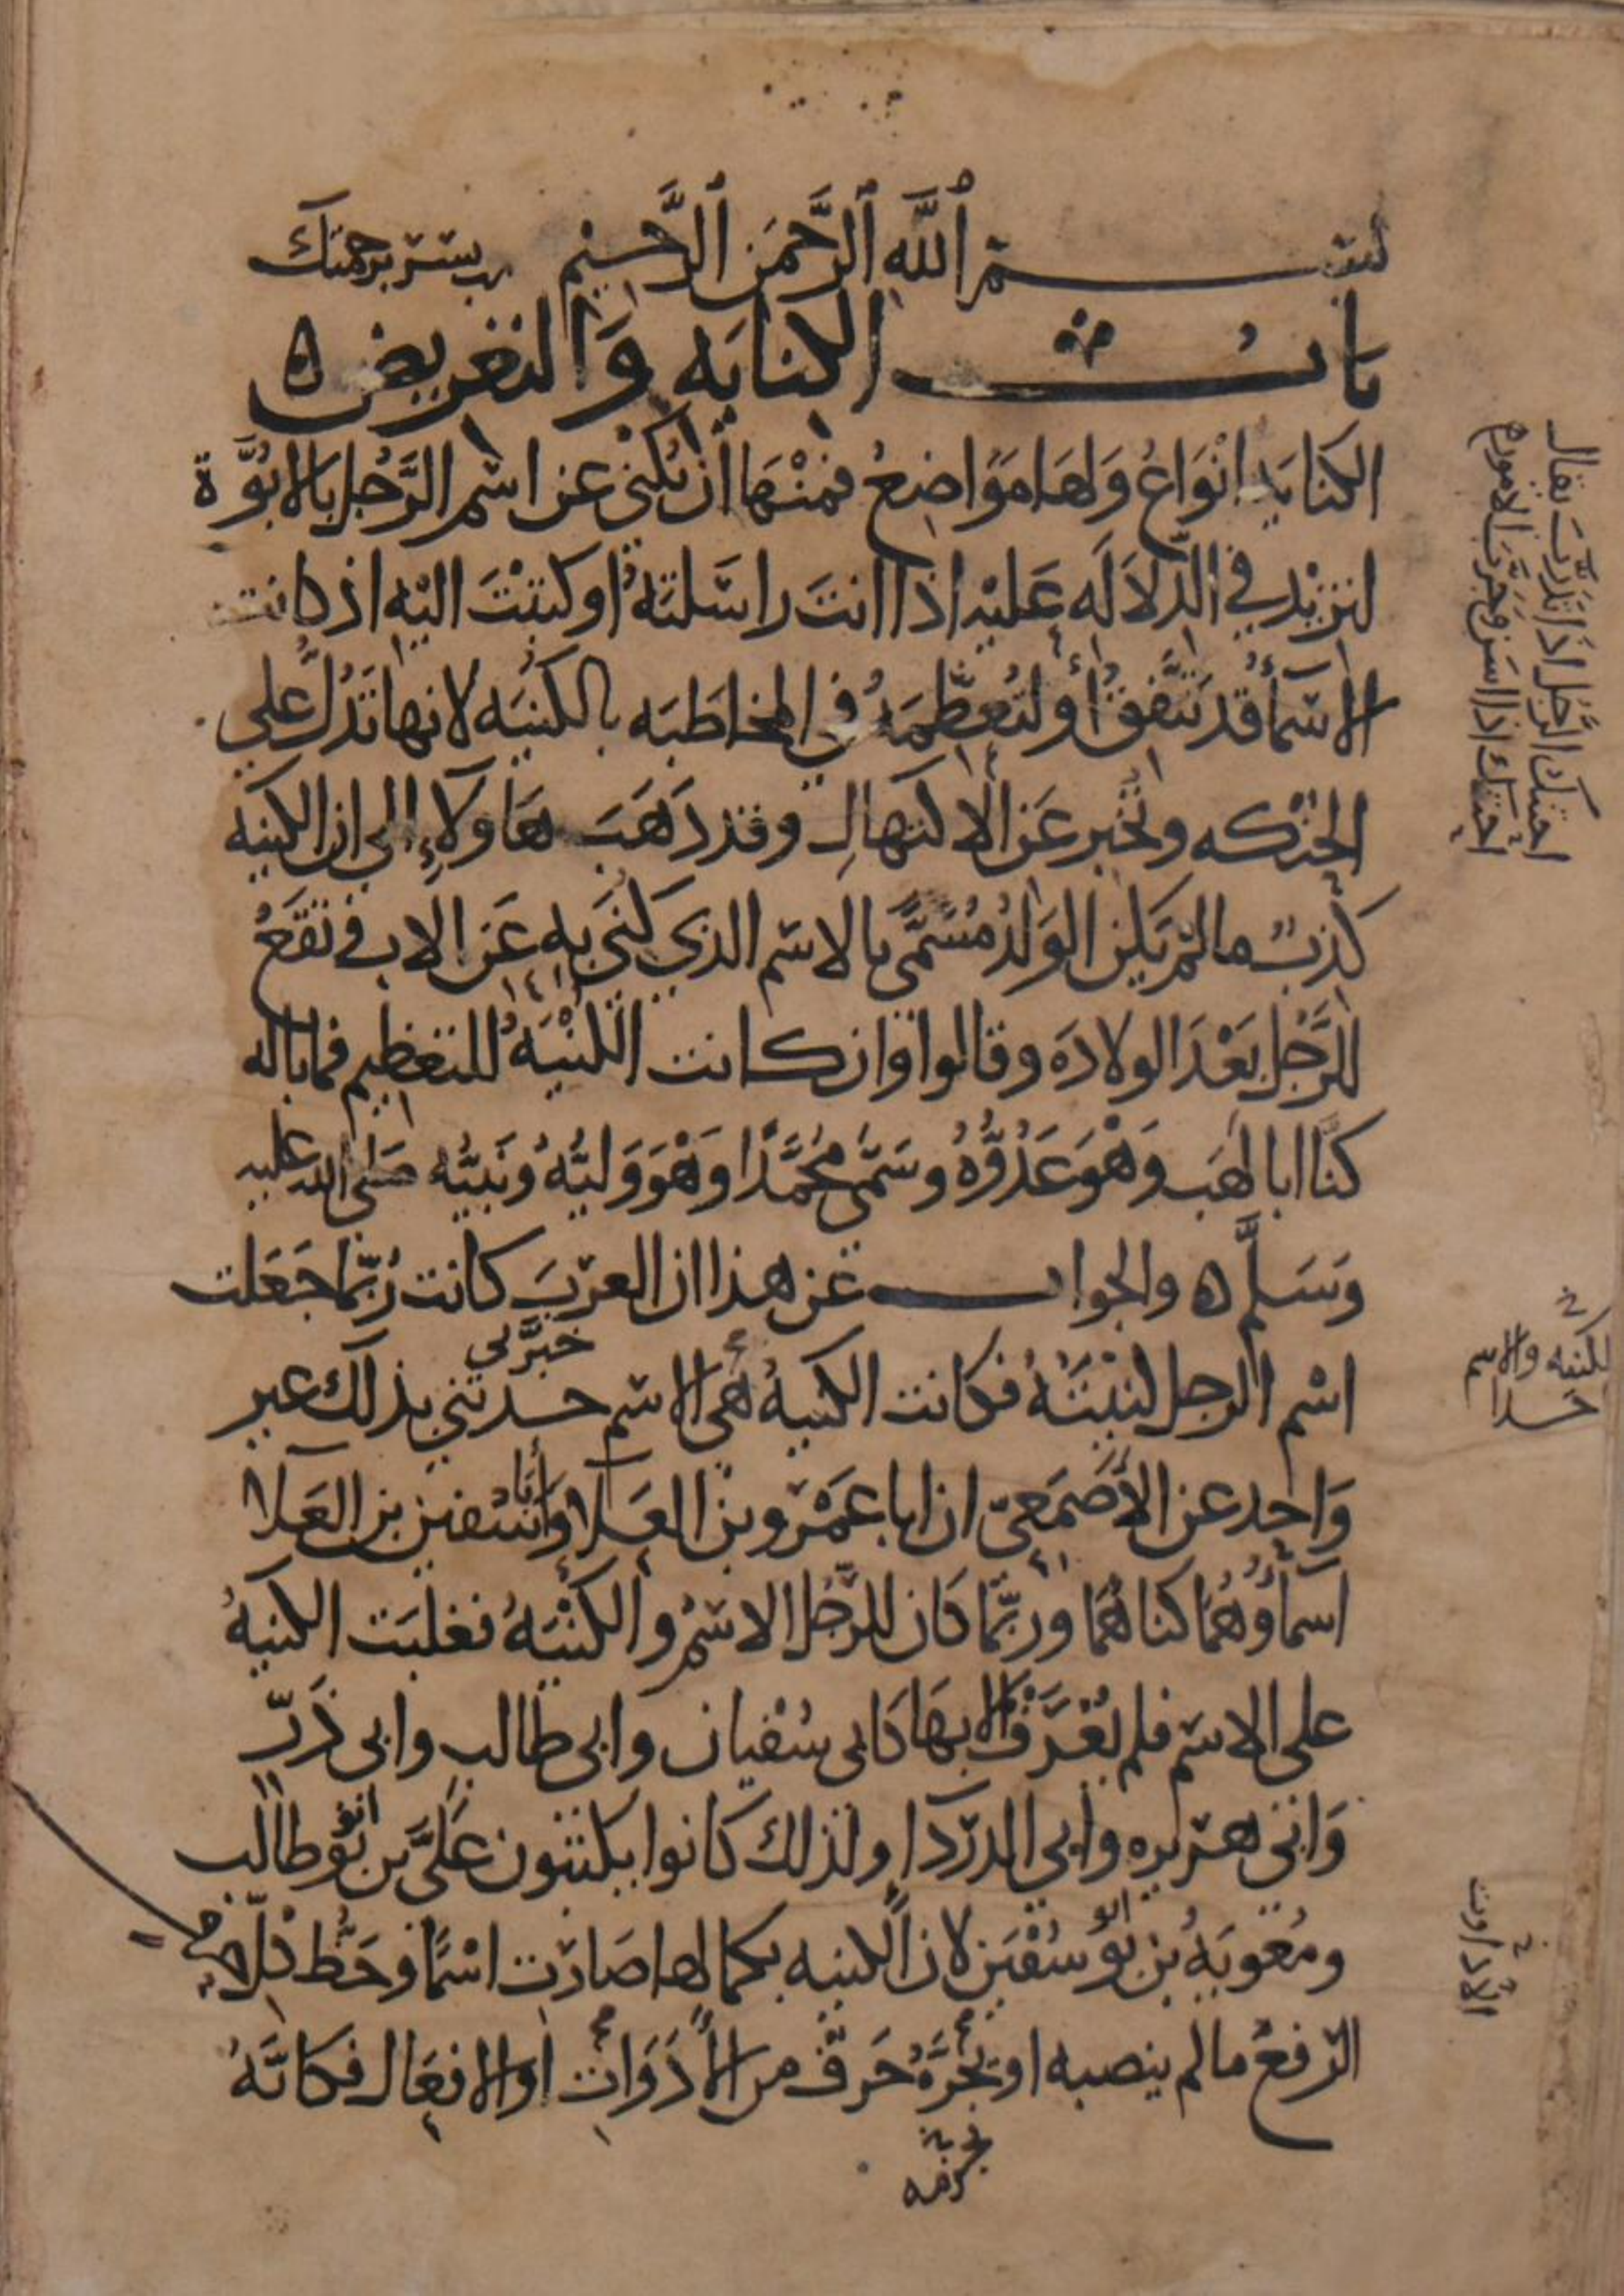 بسم الله الرحمن الرحيم رب يسر برحمتك
باب الكناية والتعريض ه
الكناية انواع ولها مواضع فمنها ان يكنى عن اسم الرجل بالابوة
لتزيد في الدلالة عليه اذا انت راسلته او كتبت اليه اذ كانت
الاسماء قد تتفق أو لتعظمه في المخاطبه بالكنيه لانها تدل على
الحنكه وتخبر عن الاكتهال وقد ذهب هاولاء إلى ان الكنيه
كذب مالم يكن الولد مسمى بالاسم الذي كني به عن الاب وتقع
للرجل بعد الولاده وقالوا وان كانت الكنيه للتعظيم فما باله
كنا ابا لهب وهو عدوه وسمى محمدا وهو وليه ونبيه صلى الله عليه
وسلم ه والجواب عن هذا ان العرب كانت ربما جعلت
اسم الرجل كنيته فكانت الكنيه هي الاسم حدثني بذلك غير
خبرني
واحد عن الأصمعي ان ابا عمرو بن العلا وأبا سفين بن العلا
اسماؤهما كناهما وربما كان للرجل الاسم والكنيه فغلبت الكنيه
على الاسم فلم يعرف الا بها كابي سفيان وابي طالب وابي ذر
وابي هريره وابي الدردا ولذلك كانوا يكتبون علي بن ابو طالب
ومعويه بن ابو سفين لان الكنيه بكمالها صارت اسما وحظ كل
الرفع مالم ينصبه او يجره حرف من الأدوات او الافعال فكانه
يقال احتنك الرجل اذا تدرب
احتنك اذا اسن وجرب الامور
للكنيه والاسم
الأدوات